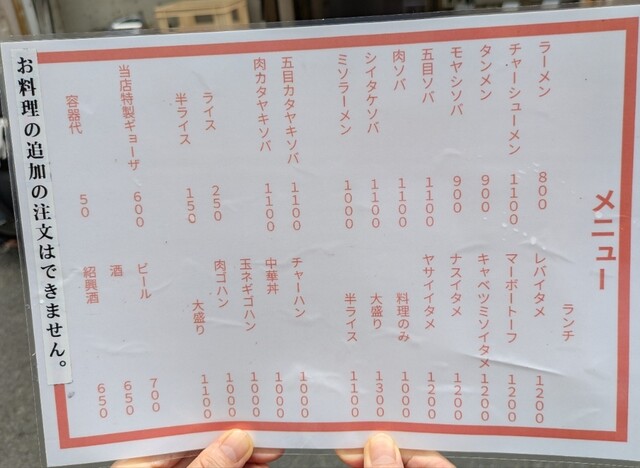 メニュー
ラーメン 800
チャーシューメン 1100
タンメン 900
モヤシソバ 900
五目ソバ 1100
肉ソバ 1100
シイタケソバ 1100
ミソラーメン 1000
五目カタヤキソバ 1100
肉カタヤキソバ 1100
ライス 250
半ライス 150
当店特製ギョーザ 600
容器代 50
ランチ
レバイタメ 1200
マーボートーフ 1200
キャベツミソイタメ 1200
ナスイタメ 1200
ヤサイイタメ 1200
料理のみ 1000
大盛り 1300
半ライス 1100
チャーハン 1000
中華丼 1000
玉ネギゴハン 1000
肉ゴハン 1000
大盛り 1100
ビール 700
酒 650
紹興酒 650
お料理の追加の注文はできません。